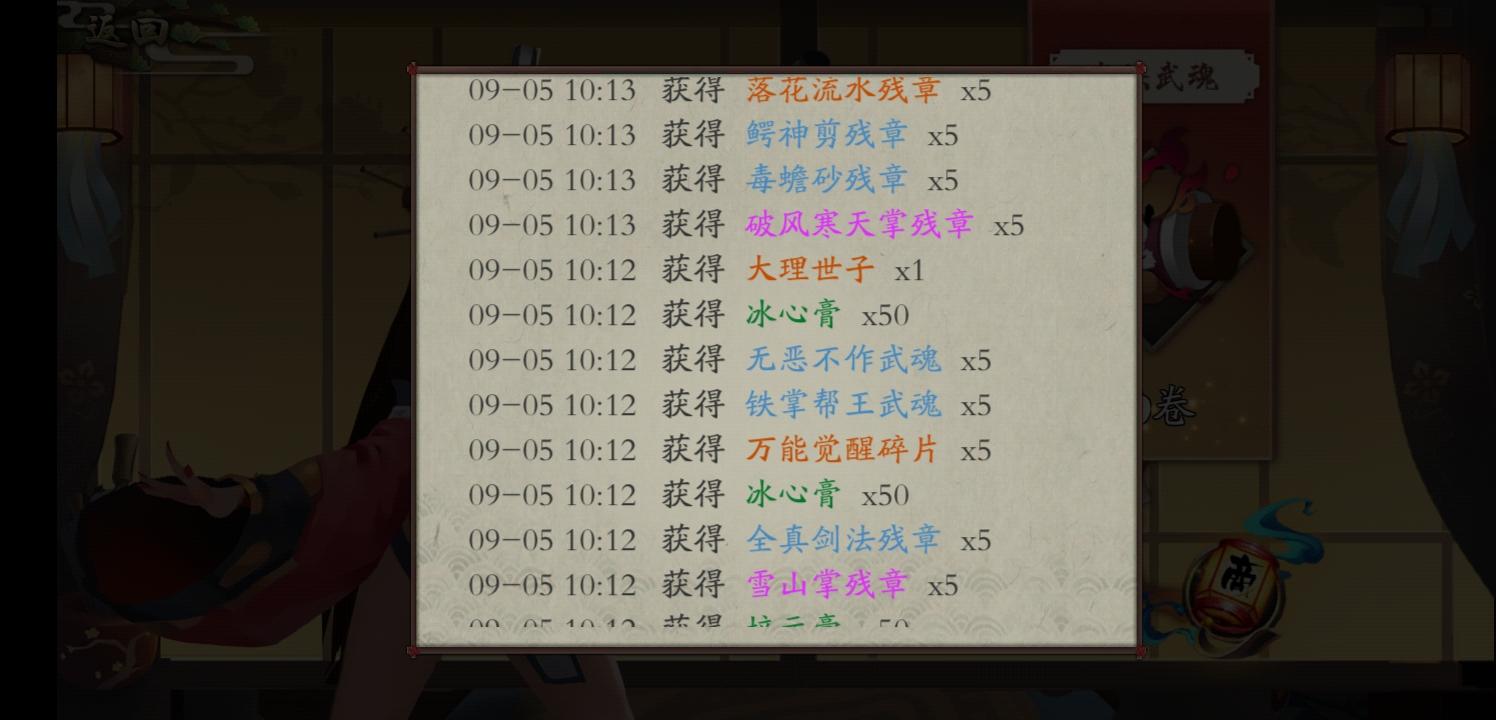 返回
09-05 10:13 获得 落花流水残章 x5
09-05 10:13 获得 鳄神剪残章 x5
09-05 10:13 获得 毒蟾砂残章 x5
09-05 10:13 获得 破风寒天掌残章 x5
09-05 10:12 获得 大理世子 x1
09-05 10:12 获得 冰心膏 x50
09-05 10:12 获得 无恶不作武魂 x5
09-05 10:12 获得 铁掌帮王武魂 x5
09-05 10:12 获得 万能觉醒碎片 x5
09-05 10:12 获得 冰心膏 x50
09-05 10:12 获得 全真剑法残章 x5
09-05 10:12 获得 雪山掌残章 x5
09-05 10:12 获得
武魂
卷